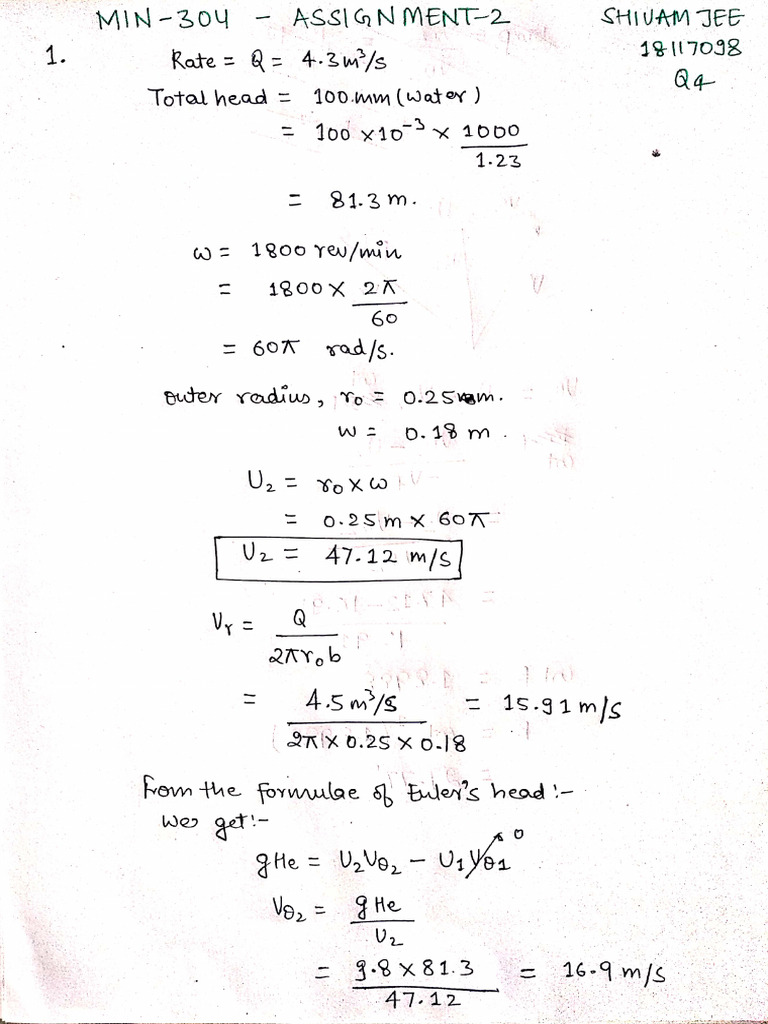 MIN-304 - ASSIGNMENT-2
SHIVAM JEE
18117098
Q4
1.
Rate = Q = 4.3 m³/s
Total head = 100.mm (water)
= 100 × 10⁻³ × 1000/1.23
= 81.3 m.
ω = 1800 rev/min
= 1800 × 2π/60
= 60π rad/s.
outer radius, r₀ = 0.25 m.
w = 0.18 m.
U₂ = r₀ × ω
= 0.25 m × 60π
U₂ = 47.12 m/s
Vr = Q/2πr₀b
= 4.5 m³/s / 2π × 0.25 × 0.18 = 15.91 m/s
from the formulae of Euler's head :-
We get :-
gHe = U₂Vθ₂ - U₁Vθ1 0
Vθ₂ = gHe/U₂
= 9.8 × 81.3/47.12 = 16.9 m/s